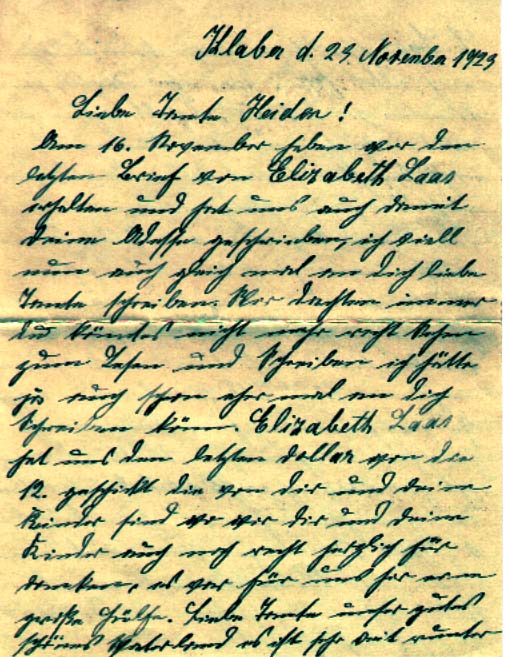 Klaber d. 23. November 1923
Liebe Tante Heiden!
Am 16. November haben wir den
letzten Brief von Elizabeth Laas
erhalten und hat uns auch damit
deine Adesse geschrieben, ich will
nun auch gleich mal an dich liebe
Tante schreiben. Wir dachten immer
du köntes nicht mehr recht Sehen
zum Lesen und Schreiben ich hätte
ja auch schon eher mal an dich
schreiben könn. Elizabeth Laas
hat uns den letzten dollar von die
12. geschickt die von dir und deine
Kinder sind wo wir dir und deine
Kinder auch noch recht herzlich für
danken, es war für uns hir eine
große Hülfe. Liebe Tante unser gutes
schönes Vaterland es ist sehr weit runter